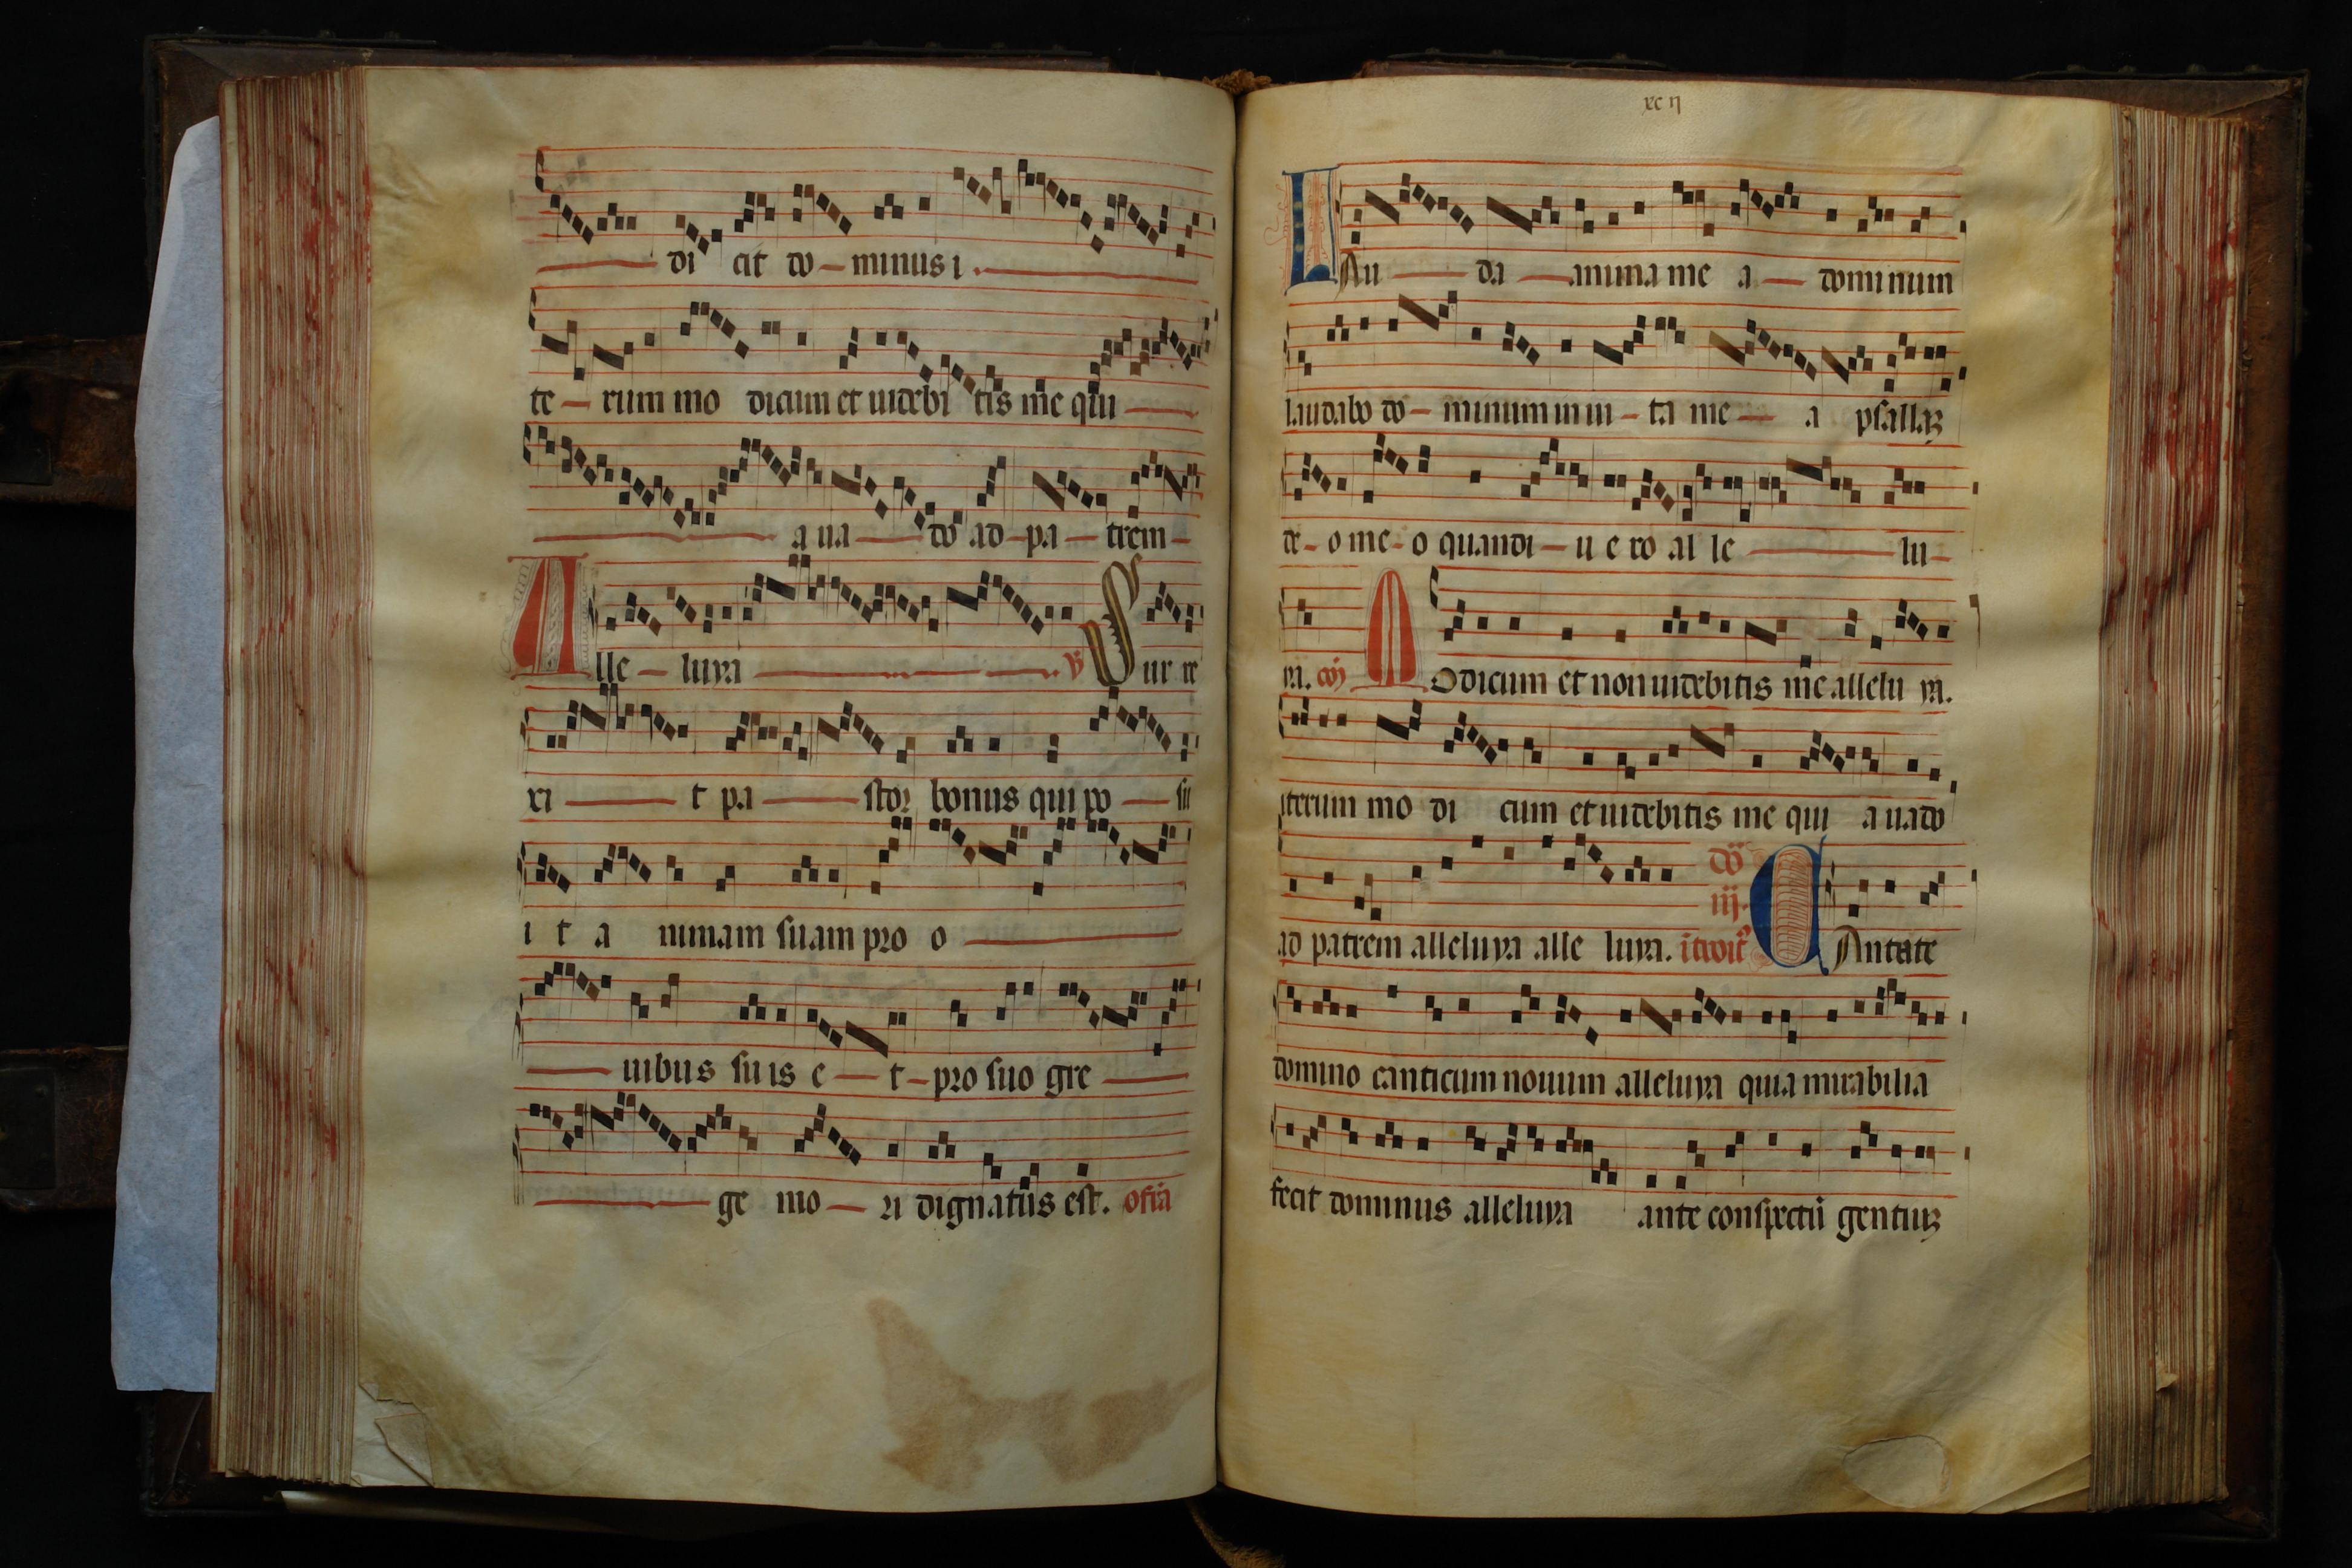 di cit do minus i
te rum mo dicum et uidebi tis me qui
a ua do ad pa trem
Alle luya ℣ Sur re
xi t pa stor bonus qui po su
i t a nimam suam pro o
uibus suis e t pro suo gre
ge mo ri dignatus est. offa
xc ii
LAu da anima me a dominum
laudabo do minum in ui ta me a psallaꝫ
de o me o quandi u e ro al le lu
ya. cō Modicum et non uidebitis me allelu ya.
iterum mo di cum et uidebitis me qui a uado
ad patrem alleluya alle luya. dō iij. ītroit CAntate
domino canticum nouum alleluya quia mirabilia
fecit dominus alleluya ante conspectū gentiuꝫ